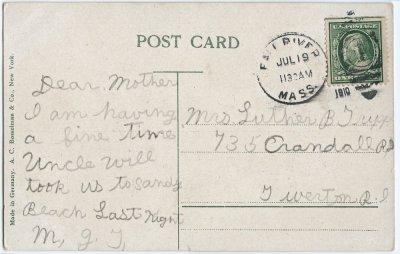 POST CARD
Made in Germany. A. C. Bosselman & Co., New York.
Dear Mother
I am having
a fine time
Uncle Will
took us to Sandy
Beach Last Night
M, G. T,
FALL RIVER
JUL 19
1130AM
MASS.
1910
U.S. POSTAGE
ONE
Mrs Luther B Tripp
735 Crandall Rd
Tiverton R.I